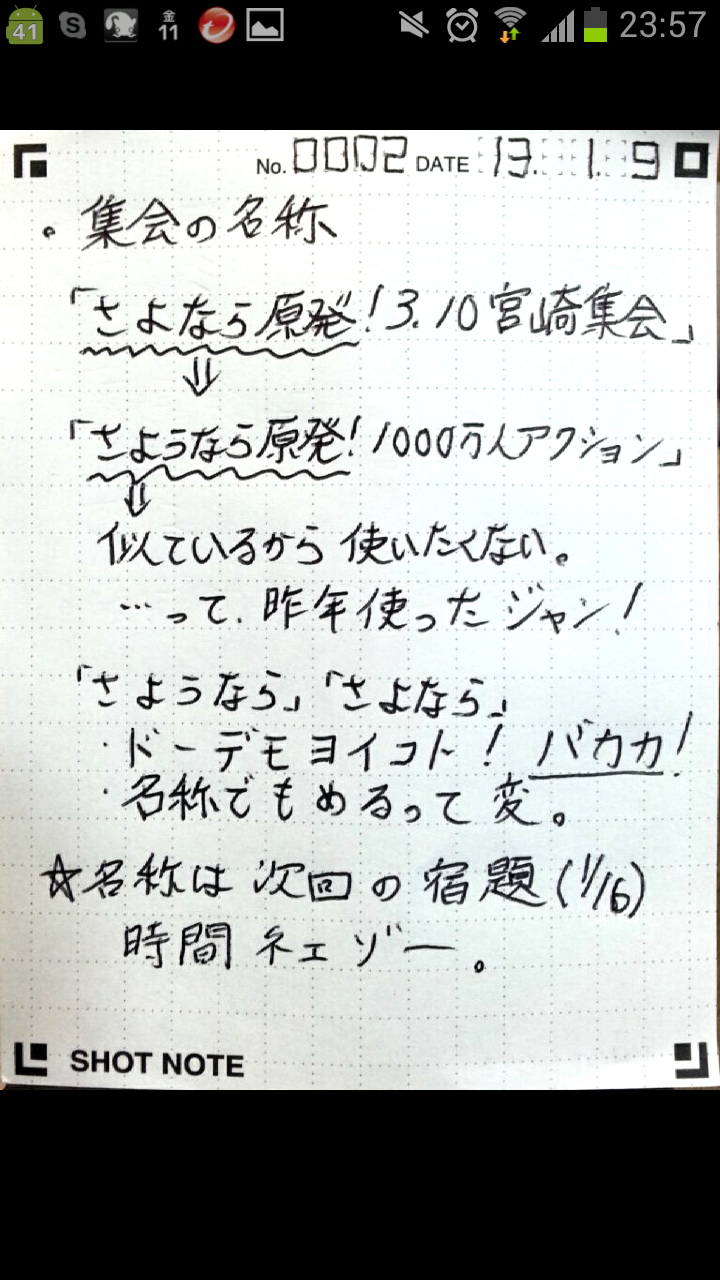 41
金
11
23:57
No. 0002 DATE 13. 1. 9
・集会の名称
「さよなら原発!3.10宮崎集会」
⇓
「さようなら原発!1000万人アクション」
⇓
似ているから使いたくない。
…って、昨年使ったジャン!
「さようなら」「さよなら」
・ドーデモヨイコト! バカカ!
・名称でもめるって変。
☆名称は次回の宿題(1/16)
時間ネェゾー。
SHOT NOTE